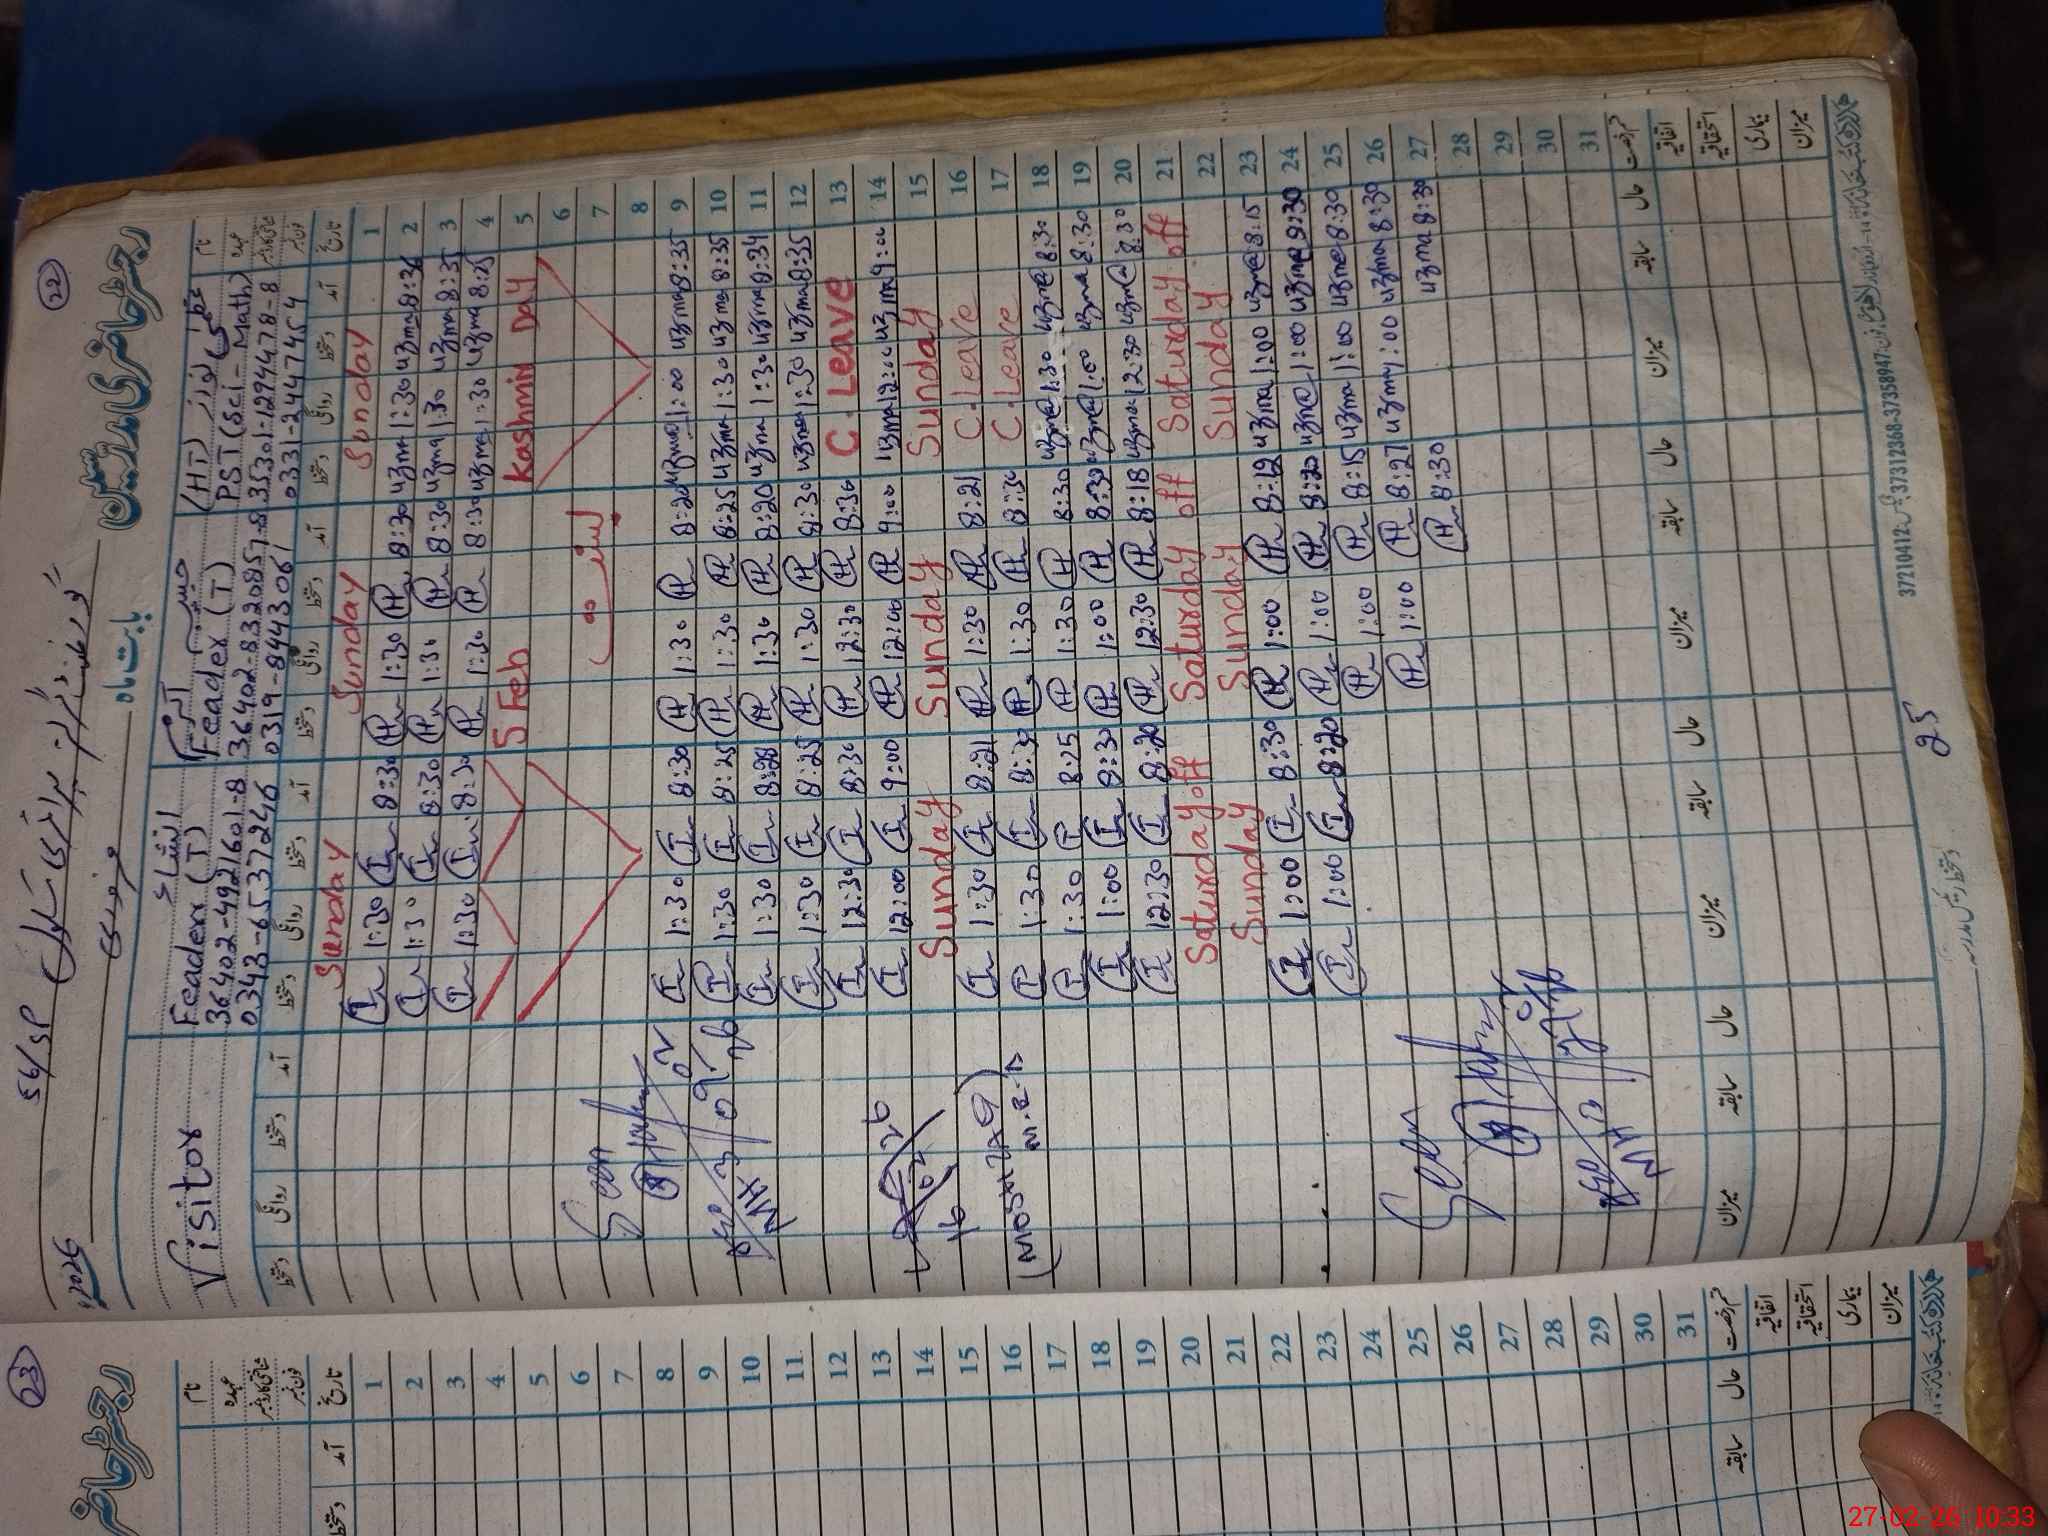 22
رجسٹر حاضری مدرسین
56/SP
2026
بابت ماہ
نام
عہدہ
شناختی کارڈ نمبر
فون نمبر
عظمیٰ نواز (HT)
PST (Sci-Math)
35301-1294478-8
0331-2447454
Teacher (T)
36402-8332085-8
0319-8443061
انشاء
Teacher (T)
36402-4921601-8
0343-6537246
Visitor
تاریخ آمد دستخط روانگی دستخط آمد دستخط روانگی دستخط آمد دستخط روانگی دستخط آمد دستخط روانگی دستخط
1 Sunday Sunday Sunday
2 8:36 uzma 1:30 uzma 8:30 H 1:30 H 8:30 I 1:30 I
3 8:35 uzma 1:30 uzma 8:30 H 1:30 H 8:30 I 1:30 I
4 8:25 uzma 1:30 uzma 8:30 H 1:30 H 8:30 I 1:30 I
5 Kashmir Day 5 Feb
6
7
8
9 8:35 uzma 1:00 uzma 8:20 H 1:30 H 8:30 I 1:30 I
10 8:35 uzma 1:30 uzma 8:25 H 1:30 H 8:25 I 1:30 I
11 8:34 uzma 1:30 uzma 8:20 H 1:30 H 8:28 I 1:30 I
12 8:35 uzma 1:30 uzma 8:30 H 1:30 H 8:25 I 1:30 I
13 C. Leave 8:30 H 12:30 H 8:30 I 12:30 I
14 9:00 uzma 12:00 uzma 9:00 H 12:00 H 9:00 I 12:00 I
15 Sunday Sunday Sunday
16 C. Leave 8:21 H 1:30 H 8:21 I 1:30 I
17 C. Leave 8:30 H 1:30 H 8:30 I 1:30 I
18 8:30 uzma 1:30 uzma 8:30 H 1:30 H 8:25 I 1:30 I
19 8:30 uzma 1:00 uzma 8:30 H 1:00 H 8:30 I 1:00 I
20 8:30 uzma 12:30 uzma 8:18 H 12:30 H 8:20 I 12:30 I
21 Saturday off Saturday off Saturday off
22 Sunday Sunday Sunday
23 8:15 uzma 1:00 uzma 8:12 H 1:00 H 8:30 I 1:00 I
24 8:30 uzma 1:00 uzma 8:20 H 1:00 H 8:20 I 1:00 I
25 8:30 uzma 1:00 uzma 8:15 H 1:00 H
26 8:30 uzma 1:00 uzma 8:27 H 1:00 H
27 8:30 uzma 8:30 H
28
29
30
31
Seen
Seen
قسم رخصت حال سابقہ میزان حال سابقہ میزان حال سابقہ میزان حال سابقہ میزان
اتفاقیہ
استحقاقیہ
بیماری
میزان
37210412
37312368-37358947
25
23
رجسٹر حاضر
نام
عہدہ
شناختی کارڈ نمبر
فون نمبر
تاریخ آمد دستخط
1
2
3
4
5
6
7
8
9
10
11
12
13
14
15
16
17
18
19
20
21
22
23
24
25
26
27
28
29
30
31
قسم رخصت حال سابقہ
اتفاقیہ
استحقاقیہ
بیماری
میزان
27-02-26 10:33